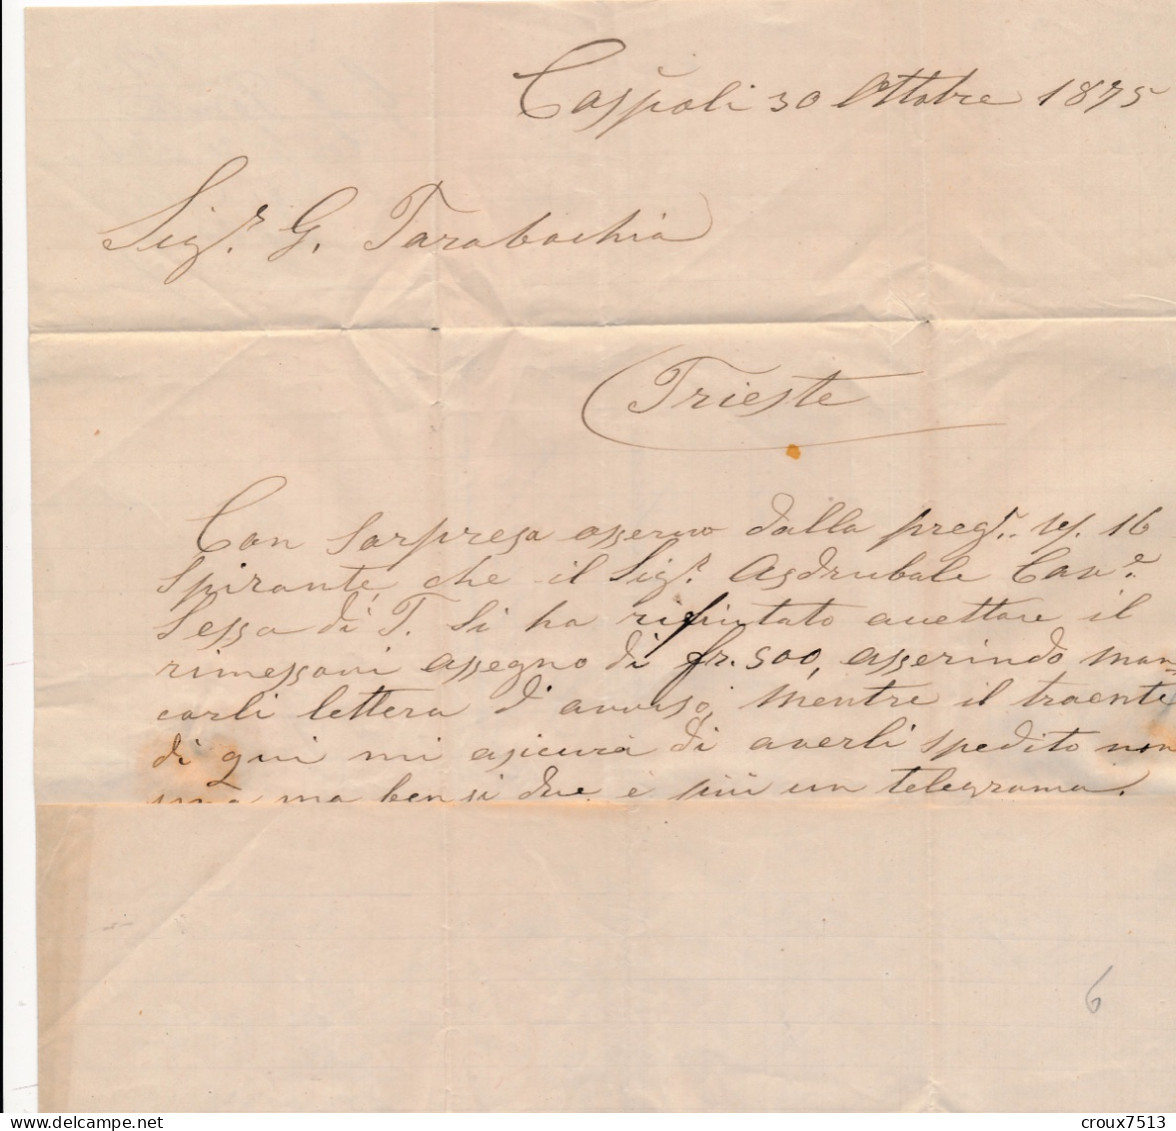 Caspoli 30 Ottobre 1875
Sigr. G. Tarabochia
Trieste
Con sorpresa osservo dalla pregr. vs. 16
spirante, che il Sigr. Asdrubale Cave.
Sessa di T. Si ha rifiutato accettare il
rimessovi assegno di fr. 500, asserindo man=
carli lettera d'avviso, mentre il traente
di qui mi asicura di averli spedito non
una ma bensi due e più un telegrama.
6
croux7513